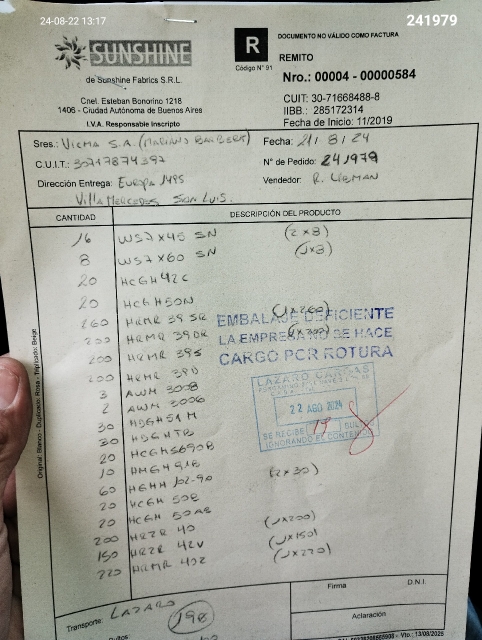 24-08-22 13:17
241979
SUNSHINE
de Sunshine Fabrics S.R.L.
Cnel. Esteban Bonorino 1218
1406 - Ciudad Autónoma de Buenos Aires
I.V.A. Responsable Inscripto
R
Código N° 91
DOCUMENTO NO VÁLIDO COMO FACTURA
REMITO
Nro.: 00004 - 00000584
CUIT: 30-71668488-8
IIBB.: 285172314
Fecha de Inicio: 11/2019
Sres.: VICMA S.A. (MARIANO BARBERA)
Fecha: 21/8/24
C.U.I.T.: 30717874397
N° de Pedido: 241979
Dirección Entrega: EUROPA 1495
Vendedor: R. LIBMAN
VILLA MERCEDES SAN LUIS.
CANTIDAD DESCRIPCIÓN DEL PRODUCTO
16 WS7X45 SN (2x8)
8 WS7X60 SN (1x8)
20 HCGH42C
20 HCGH50N
260 HRMR 39 SR (1x260)
200 HRMR 39DR (1x200)
200 HRMR 39S
200 HRMR 39D
3 AWM 3008
2 AWM 3006
30 HDGH51M
30 HDGHTB
20 HCGHS690B
10
60 HGHH 102-90 (2x30)
20 HCGH 50B
20 HCGH 50AB
200 HRZR 40 (1x200)
150 HRZR 42V (1x150)
220 HRMR 40Z (1x220)
EMBALAJE DEFICIENTE
LA EMPRESA NO SE HACE
CARGO POR ROTURA
LAZARO CARGAS
22 AGO 2024
SE RECIBE 19 BULTOS
IGNORANDO EL CONTENIDO
Original: Blanco - Duplicado: Rosa - Triplicado: Beige
Transporte: LAZARO
198
Bultos:
Firma
D.N.I.
Aclaración
Vto.: 13/08/2025